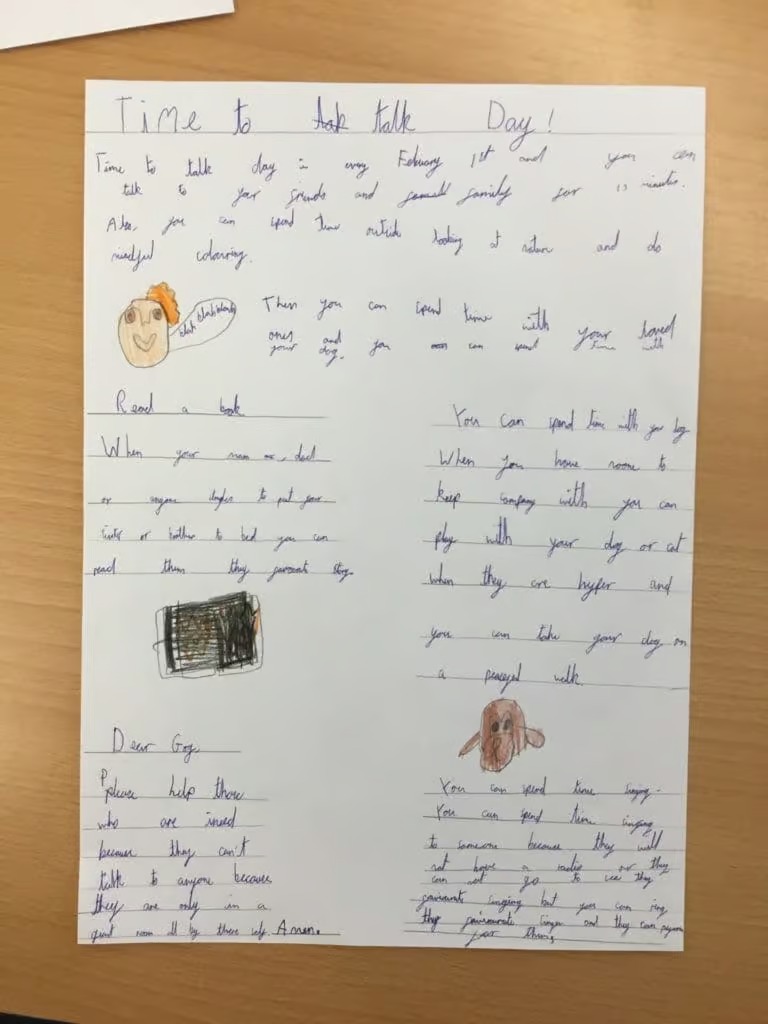 Time to talk Day!
Time to talk day is every Febuary 1st and you can
talk to your friends and family for 15 minutes.
Also, you can spend time outside looking at nature and do
mindful colouring.
blah blah blah
Then you can spend time with your loved
ones and you can spent time with
your dog.
Read a book
When your mum or dad
or anyone to put your
sister or brother to bed you can
read them they favourite story.
You can spend time with you dog
When you home to
keep company with you can
play with your dog or cat
when they are hyper and
you can take your dog on
a walk.
Dear God,
please help those
who are ineed
because they can't
talk to anyone because
they are only in a
quiet room all by there self. Amen.
You can spend time singing.
You can spend time singing
to someone because they will
not have a radio or they
can not go to see they
singing but you can
they singer and they can
for them.